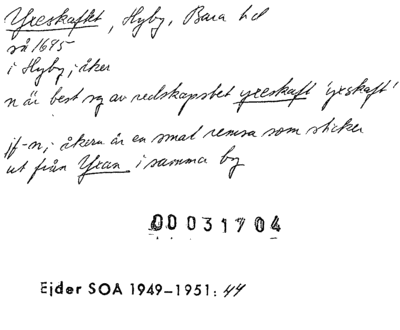 Yxeskaftet, Hyby, Bara hd
så 1695
i Hyby; åker
n är best sg av redskapsbet yxeskaft 'yxskaft'
jf-n; åkern är en smal remsa som sticker
ut från Yxan i samma by
00031704
Ejder SOA 1949-1951: 44